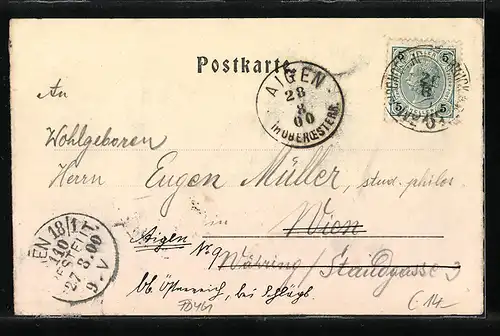 Postkarte
AIGEN
28
8
00
IN OBEROESTERR.
5 5
An
Wohlgeboren
Herrn Eugen Müller, stud. philos.
in Wien
Aigen No 9
Währing / Staudgasse 3
Ob. Österreich, bei Schlägl.
WIEN 18/1
BESTELLT
27.8.00
9. V